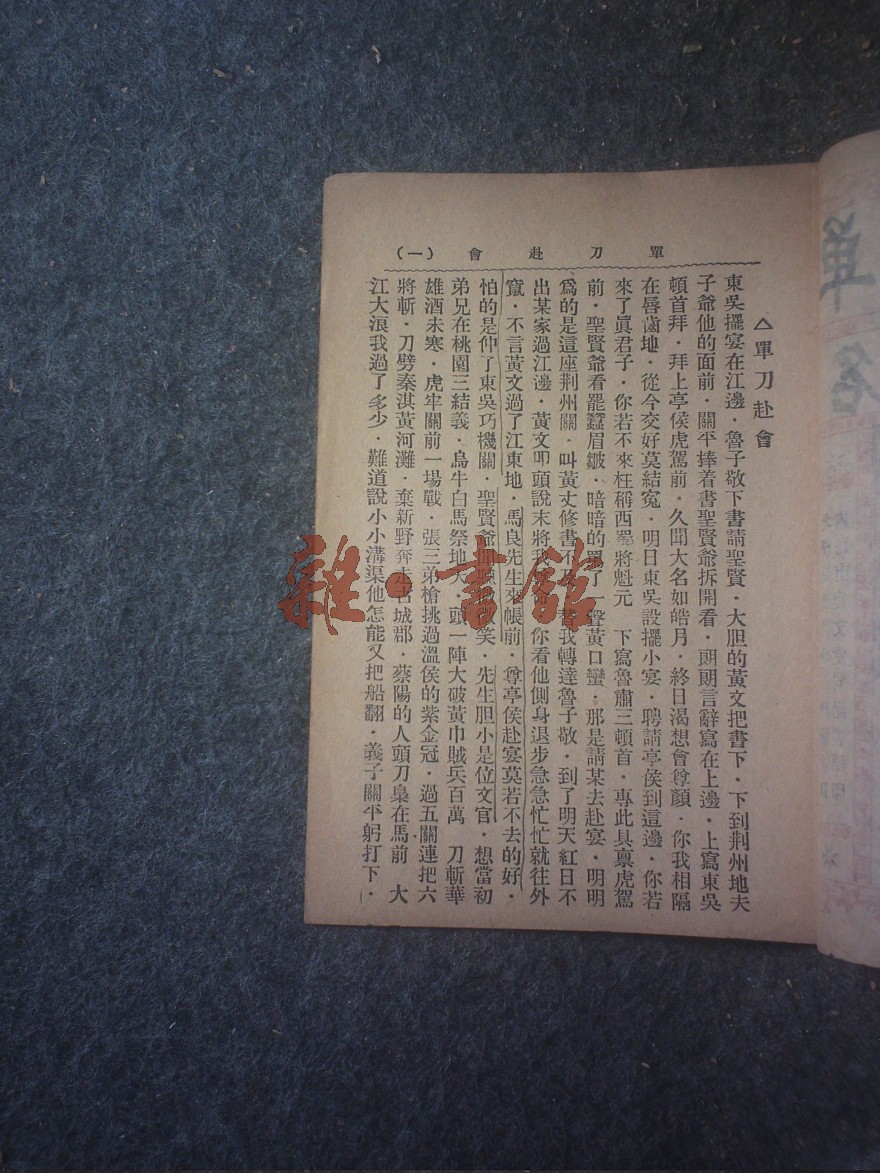 單刀赴會（一）
△單刀赴會
東吳擺宴在江邊．魯子敬下書請聖賢．大胆的黃文把書下．下到荆州地夫
子爺他的面前．關平捧着書聖賢爺拆開看．朗朗言辭寫在上邊．上寫東吳
頓首拜．拜上亭侯虎駕前．久聞大名如皓月．終日渴想會尊顏．你我相隔
在唇齒地．從今交好莫結寃．明日東吳設擺小宴．聘請亭侯到這邊．你若
來了眞君子．你若不來枉稱西蜀將魁元　下寫魯肅三頓首．專此具禀虎駕
前．聖賢爺看罷蠶眉皺．暗暗的罵了一聲黃口蠻．那是請某去赴宴．明明
爲的是這座荆州關．叫黃文修書不及．替我轉達魯子敬．到了明天紅日不
出某家過江邊．黃文叩頭說末將我命．你看他側身退步急急忙忙就往外
竄．不言黃文過了江東地．馬良先生來帳前．尊亭侯赴宴莫若不去的好．
怕的是仲了東吳巧機關．聖賢爺微笑．先生胆小是位文官．想當初
弟兄在桃園三結義．烏牛白馬祭地天．頭一陣大破黃巾賊兵百萬　刀斬華
雄酒未寒．虎牢關前一場戰．張三弟槍挑過溫侯的紫金冠．過五關連把六
將斬．刀劈秦淇黃河灘．棄新野奔走古城郡．蔡陽的人頭刀梟在馬前　大
江大浪我過了多少．難道說小小溝渠他怎能又把船翻．義子關平躬打下．
雜·書館